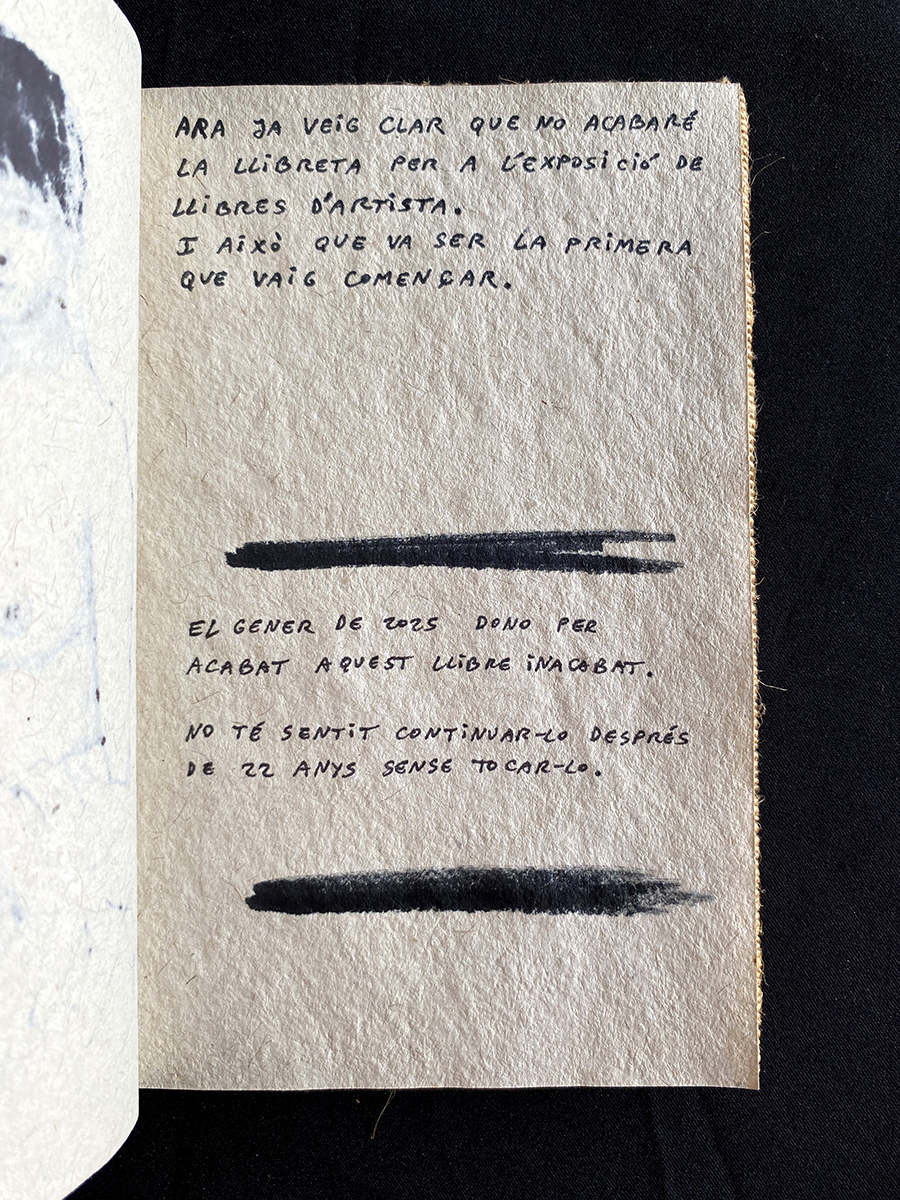 ARA JA VEiG CLAR QUE NO ACABARÉ
LA LLiBRETA PER A L'EXPOSiCiÓ DE
LLiBRES D'ARTiSTA.
I AiXÒ QUE VA SER LA PRiMERA
QUE VAiG COMENÇAR.
EL GENER DE 2025 DONO PER
ACABAT AQUEST LLiBRE iNACABAT.
NO TÉ SENTiT CONTiNUAR-LO DESPRÉS
DE 22 ANYS SENSE TOCAR-LO.